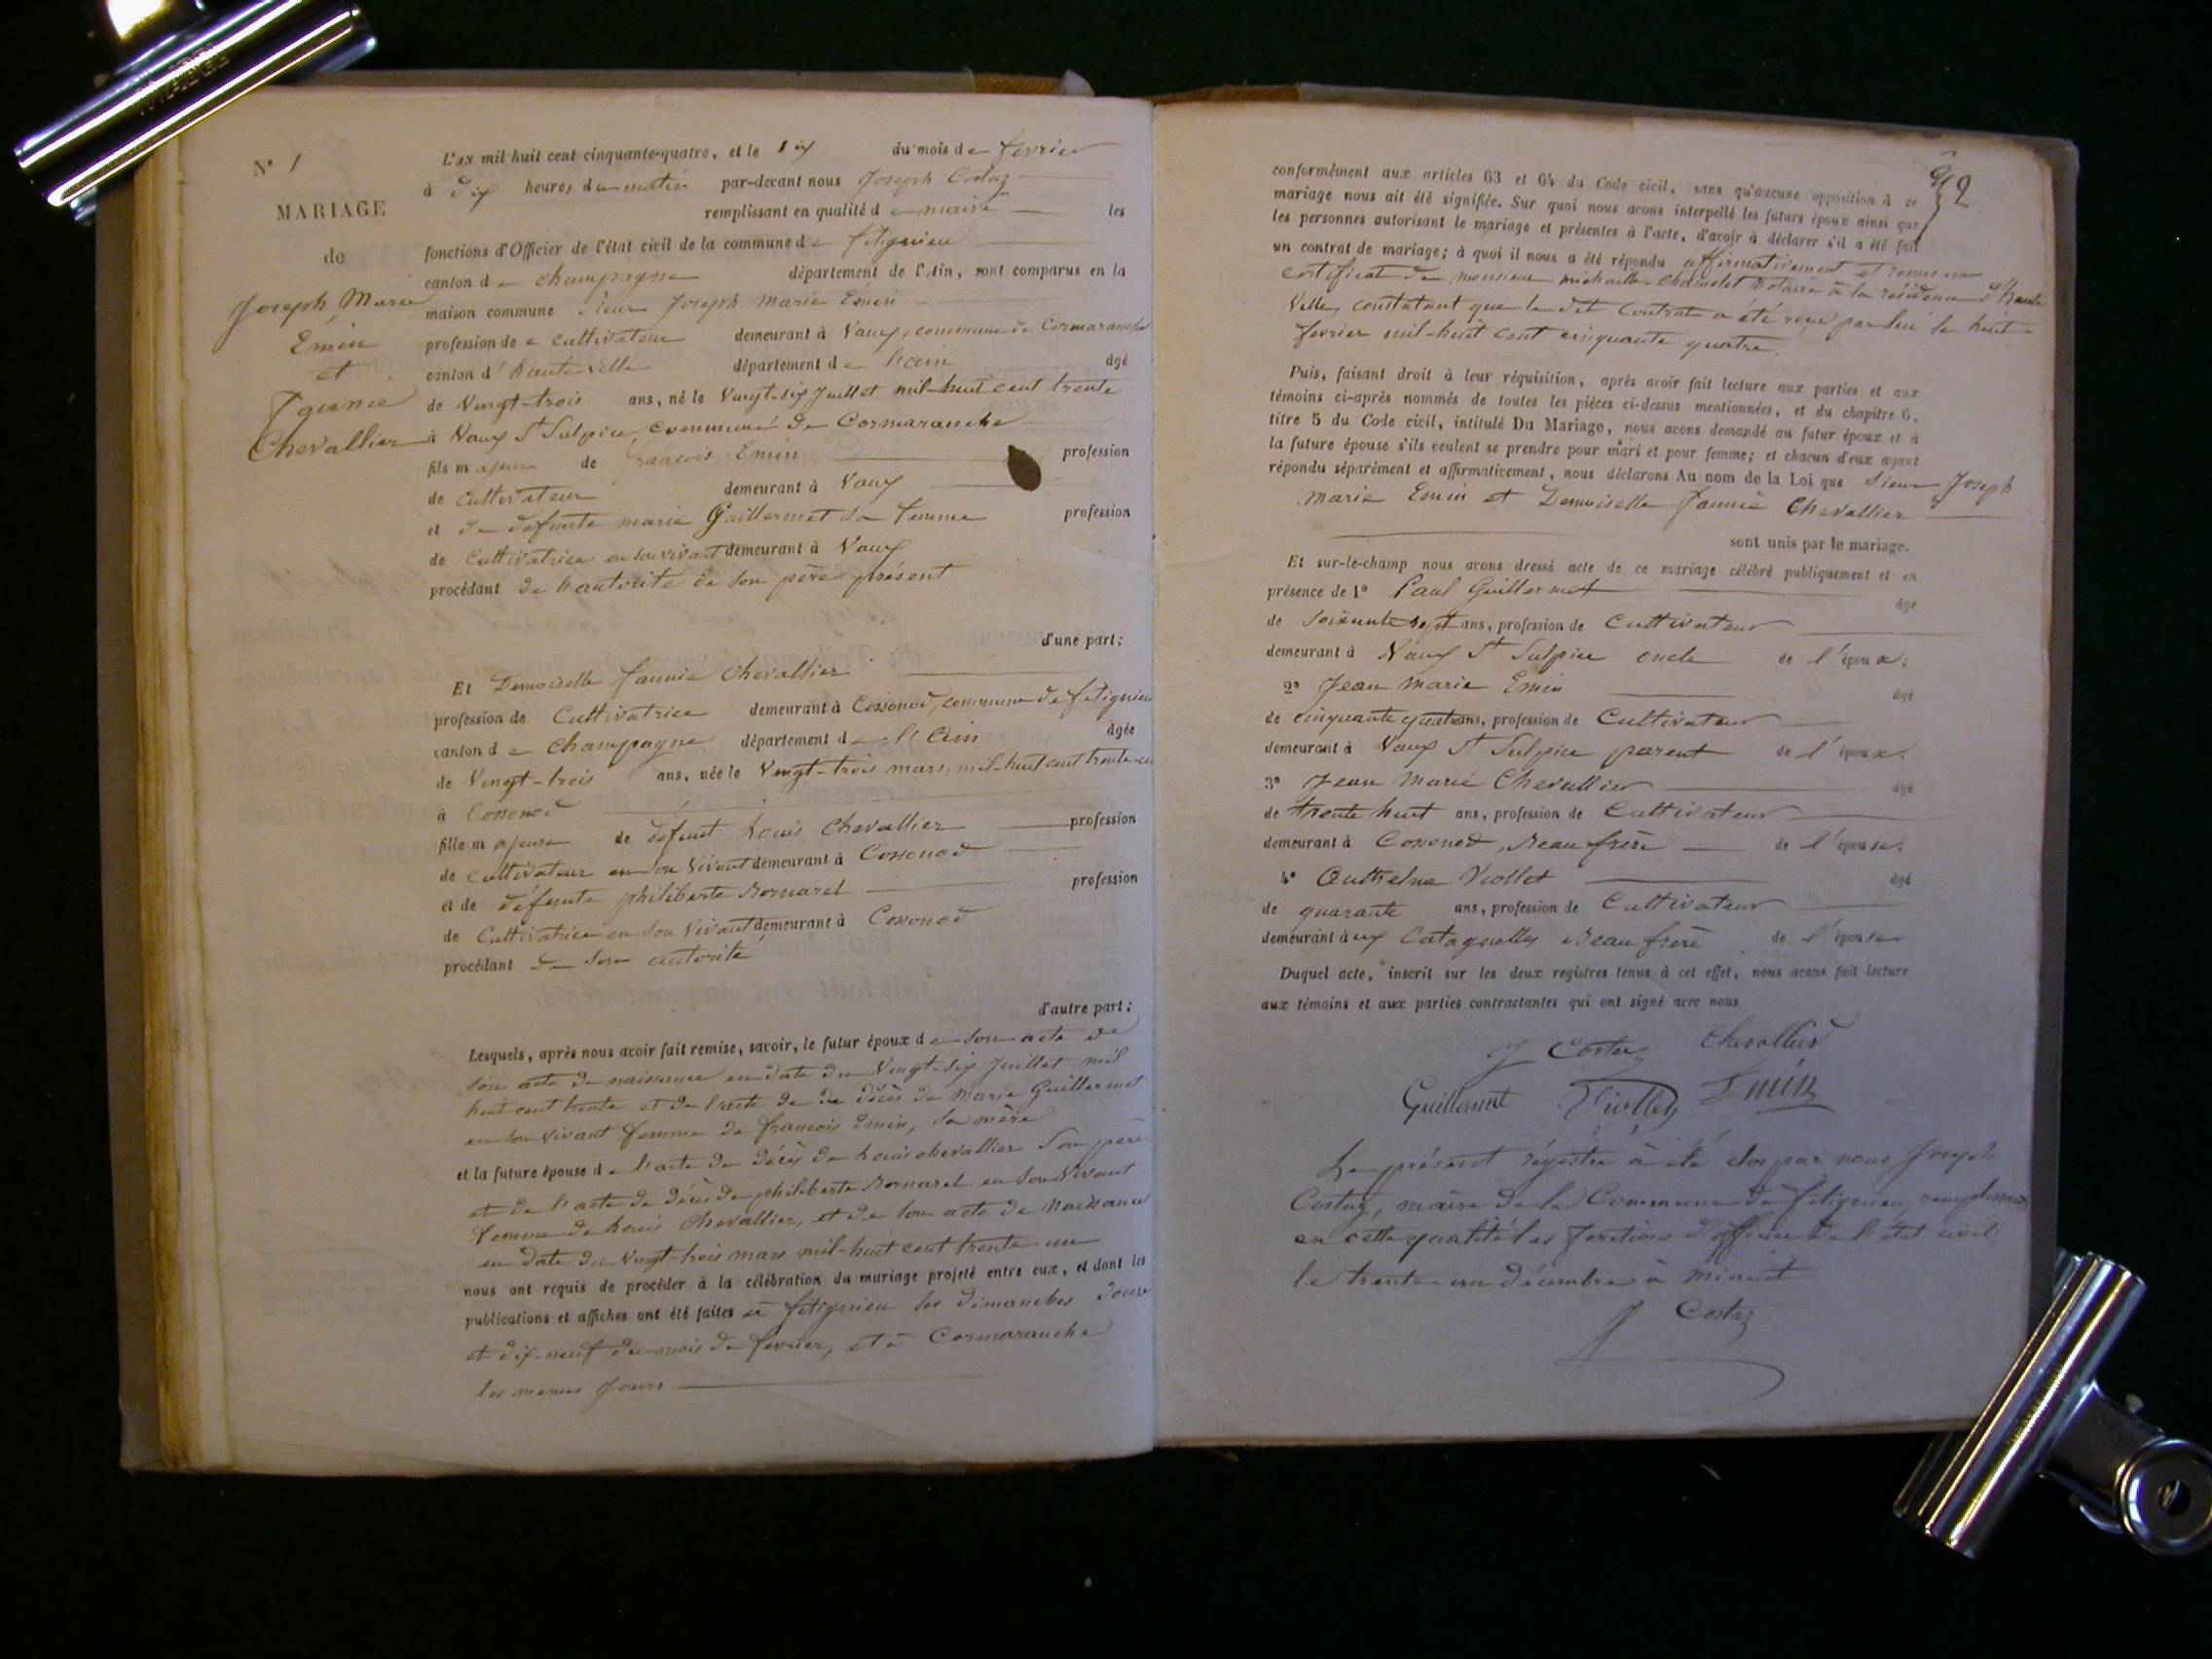 N° 1
MARIAGE
de
Joseph Marie
Emin
et
Jannie
Chevallier
L'an mil huit cent cinquante-quatre, et le du mois de fevrier
à dix heures du matin par-devant nous Joseph Costaz
remplissant en qualité de maire les
fonctions d'Officier de l'état civil de la commune de fitignieu
canton de champagne département de l'Ain, sont comparus en la
maison commune Sieur Joseph Marie Emin
profession de cultivateur demeurant à Vaux, commune de Cormaranche
canton d'hauteville département de l'ain âgé
de Vingt-trois ans, né le Vingt-six Juillet mil-huit cent trente
à Vaux St Sulpice, commune de Cormaranche
fils majeur de francois Emin profession
de Cultivateur demeurant à Vaux
et de defunte marie Guillermet sa femme profession
de Cultivatrice en son vivant demeurant à Vaux
procédant de l'autorité de son père présent
d'une part;
Et Demoiselle Jannie Chevallier
profession de Cultivatrice demeurant à Cossonod, commune de fitignieu
canton de Champagne département de l'Ain âgée
de Vingt-trois ans, née le Vingt-trois mars, mil-huit cent trente-un
à Cossonod
fille majeure de défunt Louis Chevallier profession
de cultivateur en son vivant demeurant à Cossonod
et de défunte philiberte Bornarel profession
de Cultivatrice en son vivant demeurant à Cossonod
procédant de son autorité
d'autre part;
Lesquels, après nous avoir fait remise, savoir, le futur époux de son acte de
son acte de naissance en date du Vingt-six Juillet mil
huit cent trente et de l'acte de de décès de Marie Guillermet
en son vivant femme de francois Emin, sa mère
et la future épouse de l'acte de décès de Louis chevallier son père
et de l'acte de décès de philiberte Bornarel en son vivant
femme de Louis Chevallier, et de son acte de Naissance
en date du Vingt-trois mars mil-huit cent trente-un
nous ont requis de procéder à la célébration du mariage projeté entre eux, et dont les
publications et affiches ont été faites à fitignieu les dimanches douze
et dix-neuf du mois de fevrier, et à Cormaranche
les memes Jours
2
conformément aux articles 63 et 64 du Code civil, sans qu'aucune opposition à ce
mariage nous ait été signifiée. Sur quoi nous avons interpellé les futurs époux ainsi que
les personnes autorisant le mariage et présentes à l'acte, d'avoir à déclarer s'il a été fait
un contrat de mariage; à quoi il nous a été répondu affirmativement et remis un
certificat de monsieur Chamelet Notaire à la résidence d'haute
Ville, constatant que le dit contrat a été reçu par lui le huit
fevrier mil-huit cent cinquante quatre.
Puis, faisant droit à leur réquisition, après avoir fait lecture aux parties et aux
témoins ci-après nommés de toutes les pièces ci-dessus mentionnées, et du chapitre 6,
titre 5 du Code civil, intitulé Du Mariage, nous avons demandé au futur époux et à
la future épouse s'ils veulent se prendre pour mari et pour femme; et chacun d'eux ayant
répondu séparément et affirmativement, nous déclarons Au nom de la Loi que Sieur Joseph
Marie Emin et Demoiselle Jannie Chevallier
sont unis par le mariage.
Et sur-le-champ nous avons dressé acte de ce mariage célébré publiquement et en
présence de 1° Paul Guillermet âgé
de Soixante sept ans, profession de Cultivateur
demeurant à Vaux St Sulpice oncle de l'époux;
2° Jean Marie Emin âgé
de cinquante quatre ans, profession de Cultivateur
demeurant à Vaux St Sulpice parent de l'époux.
3° Jean Marie Chevallier âgé
de trente huit ans, profession de Cultivateur
demeurant à Cossonod, Beau frère de l'épouse;
4° Anthelme Viollet âgé
de quarante ans, profession de Cultivateur
demeurant aux Catagnolles Beau frère de l'épouse
Duquel acte, inscrit sur les deux registres tenus à cet effet, nous avons fait lecture
aux témoins et aux parties contractantes qui ont signé avec nous
J Costaz Chevallier
Guillermet Viollet Emin
Le présent régistre à été clos par nous Joseph
Costaz, maire de la Commune de fitignieu, remplissant
en cette qualité les fonctions d'officier de l'état civil
le trente-un décembre à minuit
J Costaz